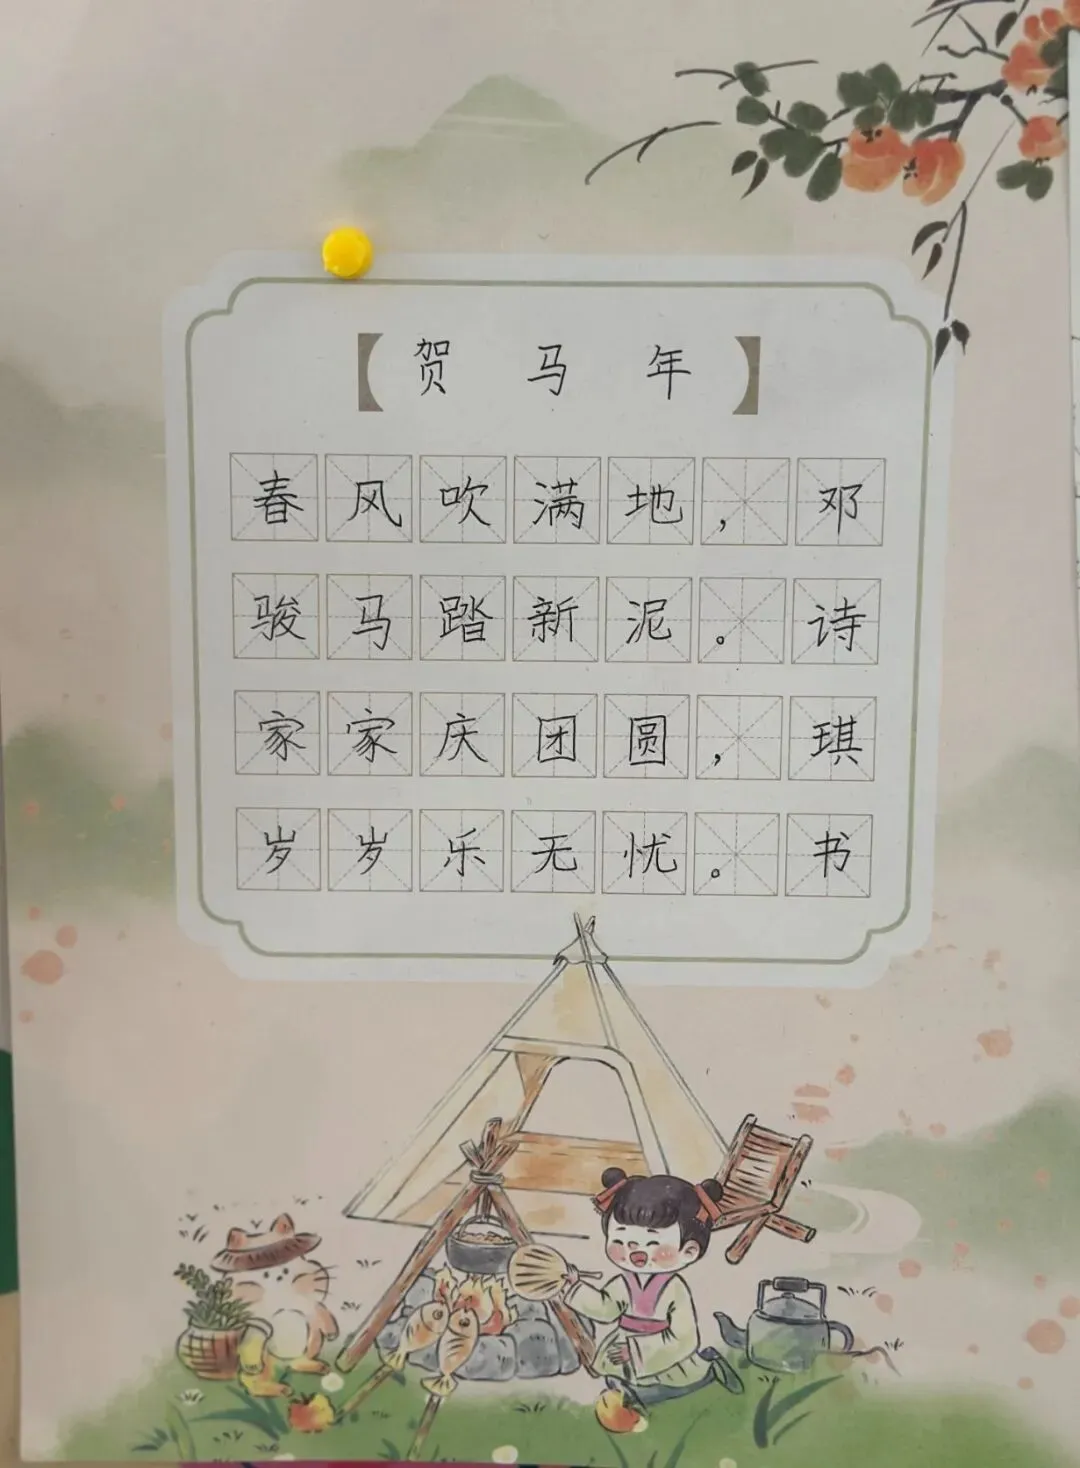 【贺马年】
春风吹满地，邓
骏马踏新泥。诗
家家庆团圆，琪
岁岁乐无忧。书